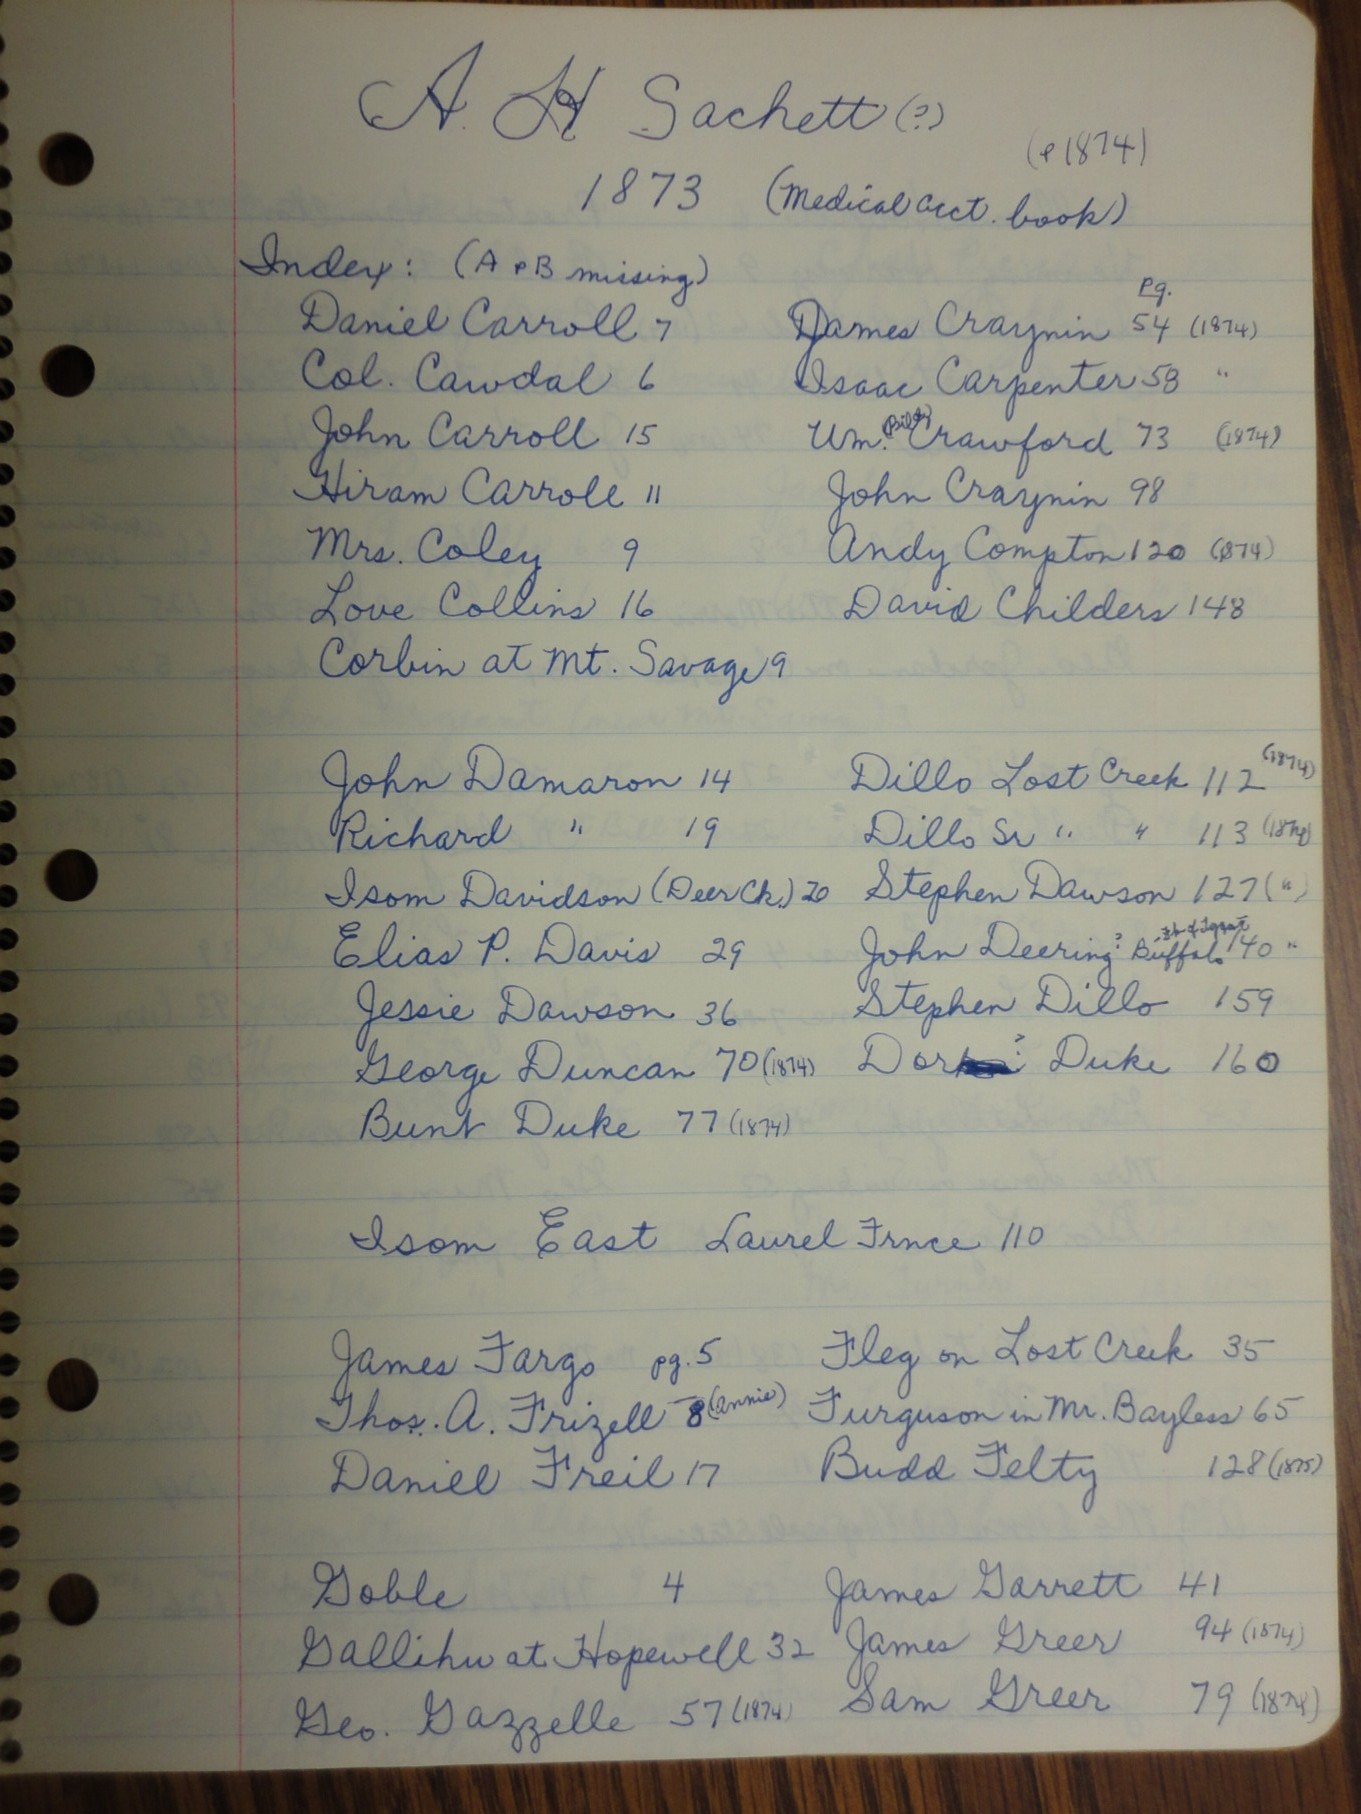 A. H Sachett (?)
(& 1874)
1873 (Medical acct. book)
Index: (A & B missing)
pg.
Daniel Carroll 7 James Craynin 54 (1874)
Col. Cawdal 6 Isaac Carpenter 58 "
John Carroll 15 Wm. (Billy) Crawford 73 (1874)
Hiram Carroll 11 John Craynin 98
Mrs. Coley 9 Andy Compton 120 (1874)
Love Collins 16 David Childers 148
Corbin at Mt. Savage 9
John Damaron 14 Dillo Lost Creek 112 (1874)
Richard " 19 Dillo Sr " " 113 (1874)
Isom Davidson (Deer Ck.) 20 Stephen Dawson 127 (")
Elias P. Davis 29 John Deering? Buffalo 140 "
Jessie Dawson 36 Stephen Dillo 159
George Duncan 70 (1874) Duke 160
Bunt Duke 77 (1874)
Isom East Laurel Frnce 110
James Fargo pg. 5 Fleg on Lost Creek 35
Thos. A. Frizell 8 (Annie) Furguson in Mr. Bayless 65
Daniel Freil 17 Budd Felty 128 (1875)
Goble 4 James Garrett 41
Gallihu at Hopewell 32 James Greer 94 (1874)
Geo. Gazzelle 57 (1874) Sam Greer 79 (1874)